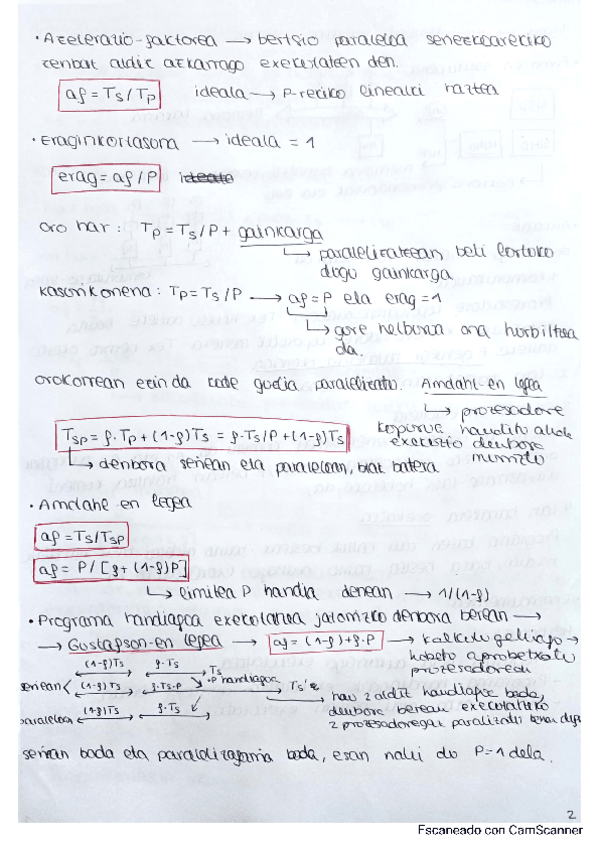 · Azelerazio-faktorea → bertsio paraleloa seriezkoarekiko
zenbat aldiz azkarrago exekutatzen den.
af = Ts/Tp ideala → P-rekiko linealki haztea
· Eraginkortasuna → ideala = 1
erag = af/P
oro har: Tp = Ts/P + gainkarga
↳ paralelizatzean, beti lortuko
dugu gainkarga
kasurik onena: Tp = Ts/P → af = P eta erag = 1
↳ gure helburua ona hurbiltzea
da.
orokorrean ezin da kode guztia paralelizatu. Amdahl-en legea
↳ prozesadore
kopurua handitu ahala
exekuzio denbora
murriztu
Tsp = f·Tp + (1-f)Ts = f·Ts/P + (1-f)Ts
↳ denbora seriean eta paraleloan, biak batera
· Amdahl-en legea
af = Ts/Tsp
af = P/[f + (1-f)P]
↳ limitea P handia denean → 1/(1-f)
· Programa handiagoa exekutatzea jatorrizko denbora berean →
→ Gustafson-en legea → af = (1-f) + f·P → kalkulu gehiago →
hobeto aprobetxatu
prozesadoreak
(1-f)Ts f·Ts Ts
seriean (1-f)Ts f·Ts·P P handiagoa Ts'
paraleloa (1-f)Ts f·Ts
nahiz 2 aldiz handiagoa bada,
denbora berean exekutatzeko
2 prozesadoregaz
seriean bada eta paralelizagarria bada, esan nahi du P=1 dela.
2
Escaneado con CamScanner